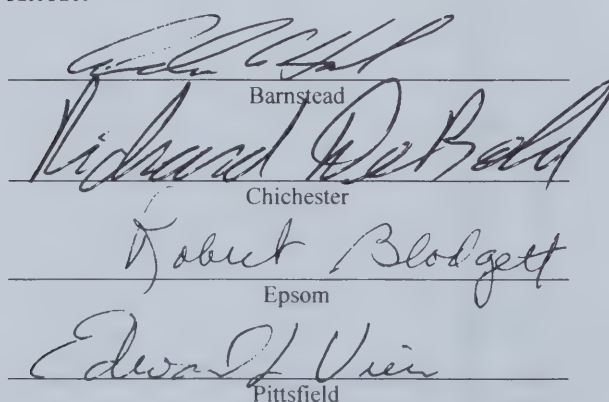 Barnstead
Richard DeBold
Chichester
Robert Blodgett
Epsom
Edward Vien
Pittsfield